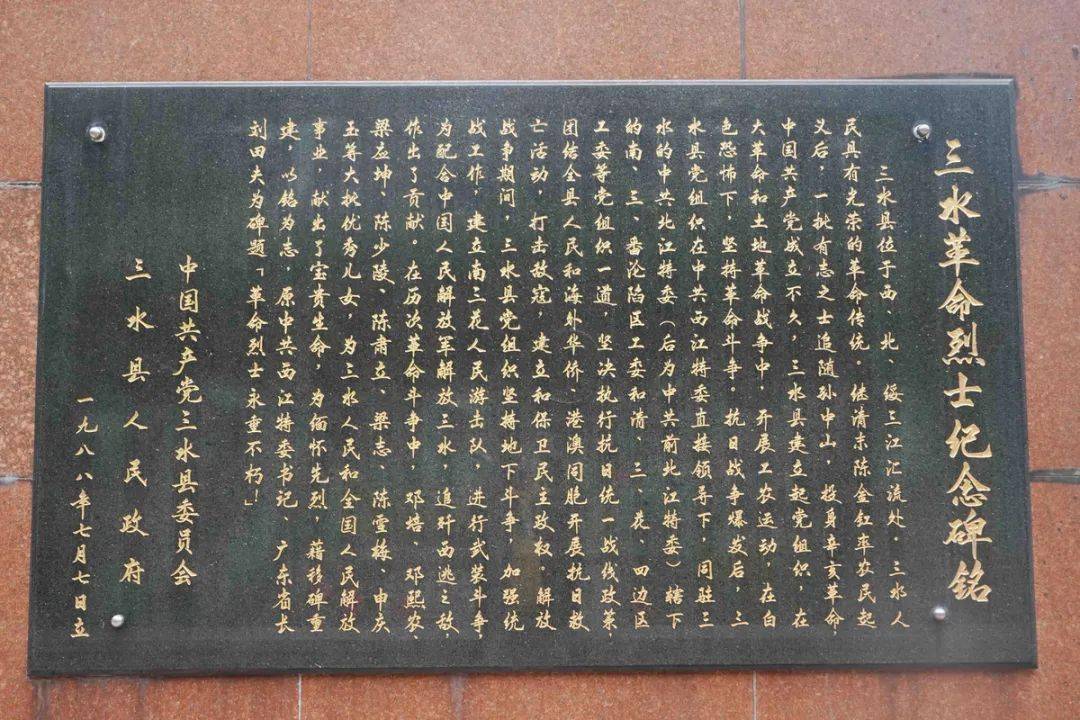 三水革命烈士纪念碑铭
三水县位于西、北、绥三江汇流处。三水人
民具有光荣的革命传统。继清末陈金釭率农民起
义后,一批有志之士追随孙中山,投身辛亥革命,
中国共产党成立不久,三水县建立起党组织,在
大革命和土地革命战争中,开展工农运动,在白
色恐怖下,坚持革命斗争。抗日战争爆发后,三
水县党组织在中共西江特委直接领导下,同驻三
水的中共北江特委(后为中共前北江特委)辖下
的南、三、番沦陷区工委和清、三、花、四边区
工委等党组织一道,坚决执行抗日统一战线政策,
团结全县人民和海外华侨、港澳同胞开展抗日救
亡活动,打击敌寇,建立和保卫民主政权。解放
战争期间,三水县党组织坚持地下斗争,加强统
战工作,建立南三花人民游击队,进行武装斗争,
为配合中国人民解放军解放三水,追歼西逃之敌,
作出了贡献。在历次革命斗争中,邓培、邓熙农、
梁应坤、陈少陵、陈肃立、梁志、陈雪、申庆
玉等大批优秀儿女,为三水人民和全国人民解放
事业,献出了宝贵生命,为缅怀先烈,藉移碑重
建,以铭为志,原中共西江特委书记、广东省长
刘田夫为碑题「革命烈士永垂不朽!」
中国共产党三水县委员会
三水县人民政府
一九八八年七月七日立